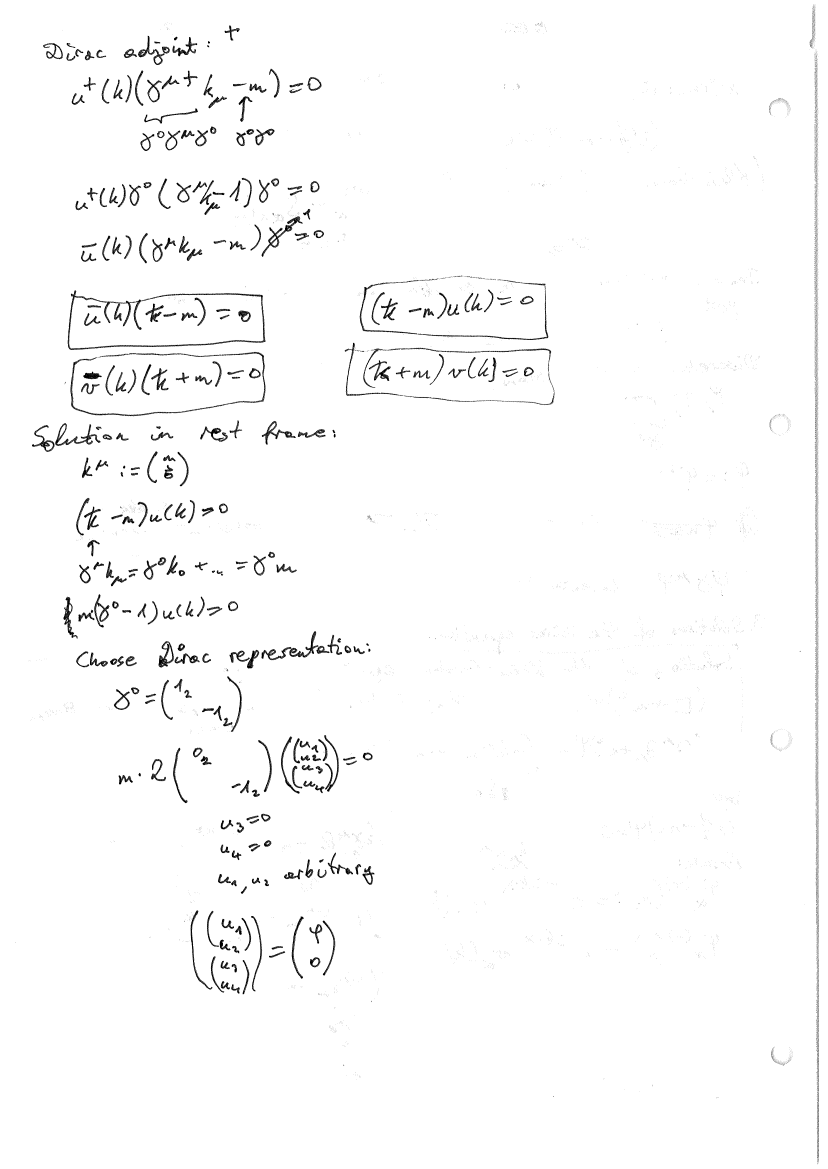 Dirac adjoint: +
u⁺(k)(γ^μ⁺ k_μ − m) = 0
γ⁰γ^μγ⁰ γ⁰γ⁰
u⁺(k)γ⁰(γ^μ k_μ − 1)γ⁰ = 0
ū(k)(γ^μ k_μ − m)γ⁰ = 0
ū(k)(k̸ − m) = 0
(k̸ − m)u(k) = 0
v̄(k)(k̸ + m) = 0
(k̸ + m)v(k) = 0
Solution in rest frame:
k^μ := (m 0⃗)
(k̸ − m)u(k) = 0
↑
γ^μ k_μ = γ⁰k₀ + ... = γ⁰m
m(γ⁰ − 1)u(k) = 0
Choose Dirac representation:
γ⁰ = (1₂ −1₂)
m · 2 (0₂ −1₂) ((u₁ u₂) (u₃ u₄)) = 0
u₃ = 0
u₄ = 0
u₁, u₂ arbitrary
((u₁ u₂) (u₃ u₄)) = (φ 0)